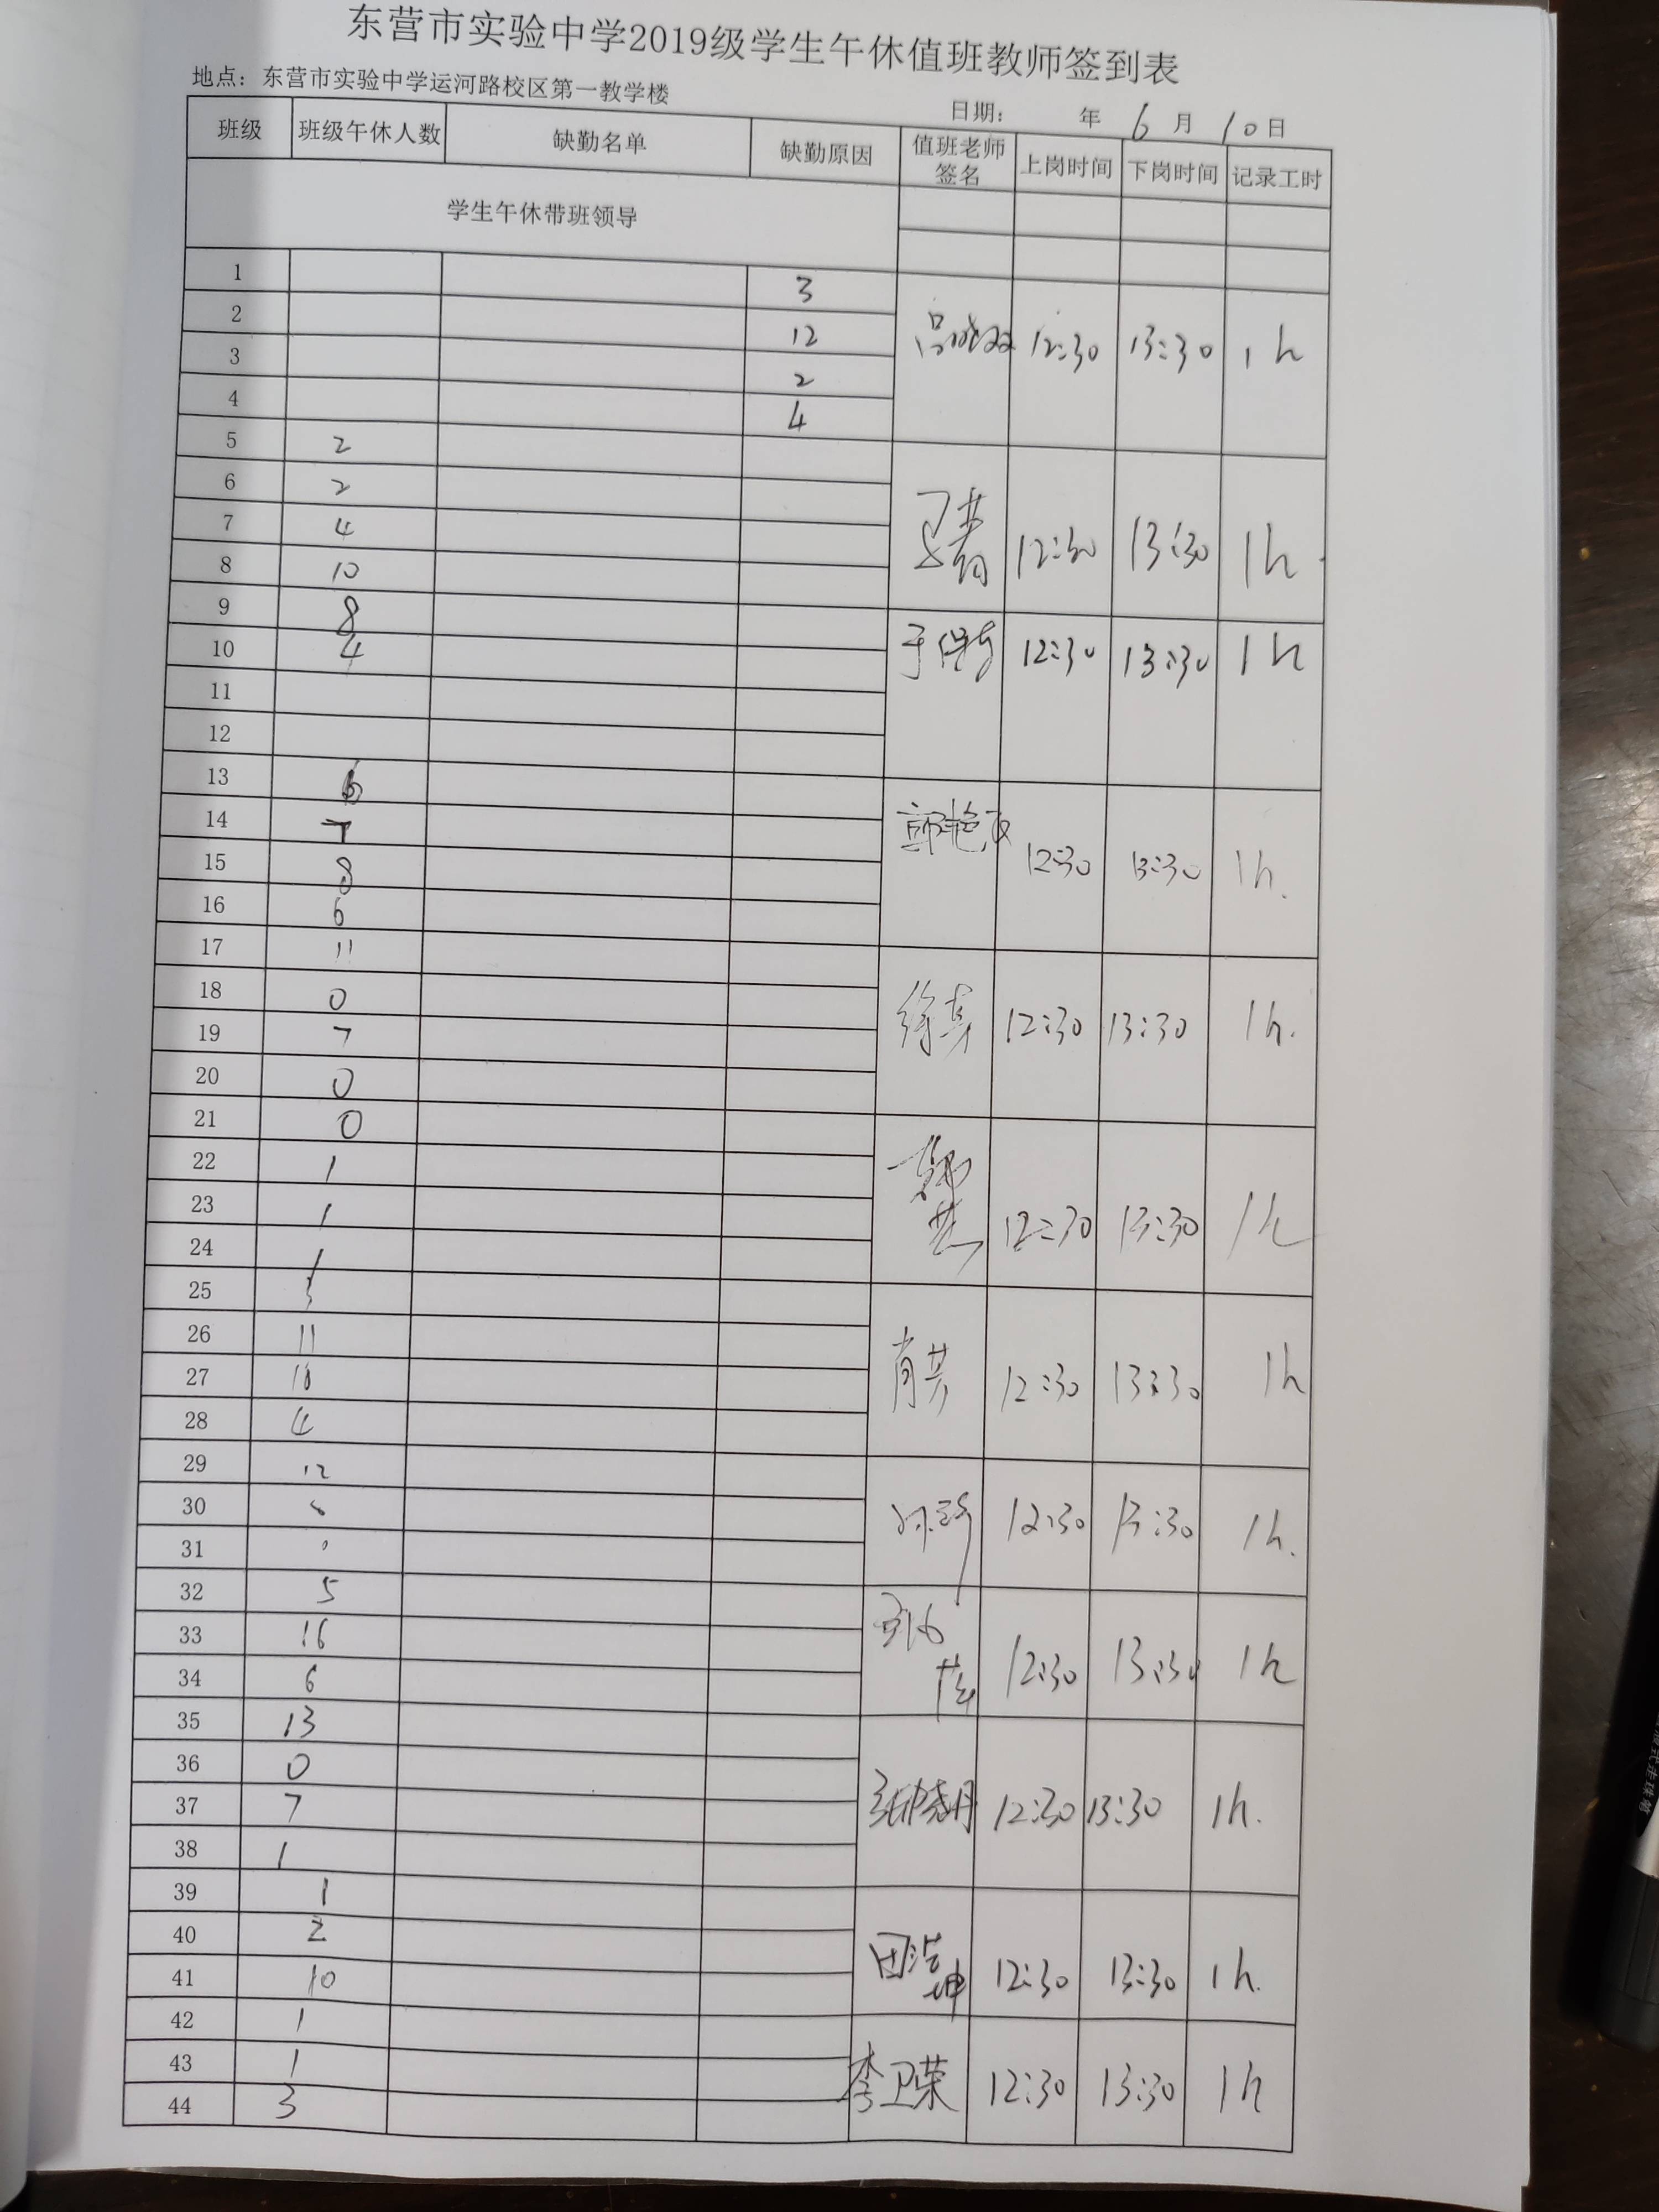 东营市实验中学2019级学生午休值班教师签到表
地点：东营市实验中学运河路校区第一教学楼
日期： 年 6 月 10 日
班级 班级午休人数 缺勤名单 缺勤原因 值班老师签名 上岗时间 下岗时间 记录工时
学生午休带班领导
1 3
2 12 12:30 13:30 1h
3 2
4 4
5 2
6 2
7 4 12:30 13:30 1h
8 10
9 8
10 4 12:30 13:30 1h
11
12
13 6
14 7
15 8 12:30 13:30 1h.
16 6
17 11
18 0
19 7 徐真 12:30 13:30 1h.
20 0
21 0
22 1
23 1 12:30 13:30 1h
24 1
25
26 11
27 肖芳 12:30 13:30 1h
28 4
29 12
30 12:30 13:30 1h.
31
32 5
33 16 12:30 13:30 1h
34 6
35 13
36 0
37 7 12:30 13:30 1h.
38 1
39 1
40 2 田浩坤 12:30 13:30 1h.
41 10
42 1
43 1 李卫荣 12:30 13:30 1h
44 3